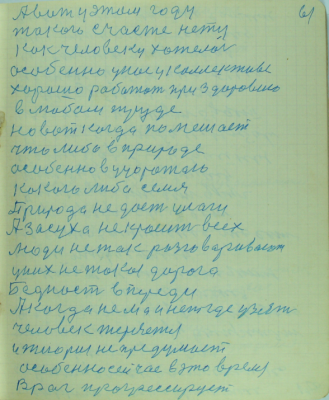 61
А вот у этом году
такого счастє нету
Как человеку хотелос
особенно унас у коллективе
хорошо работат при здоровию
в любом труде
но вот когда помешает
что либо в природе
особенно в
какого либо семя
Природа не дает улаги
А засуха некрошит всех
люди нетак разговаривают
уних не такая дорога
Бедност впереди
А когда нема и негде узят
человек теряетя
и непредумает
особенно сейчас в это время
Враг прогрессирует